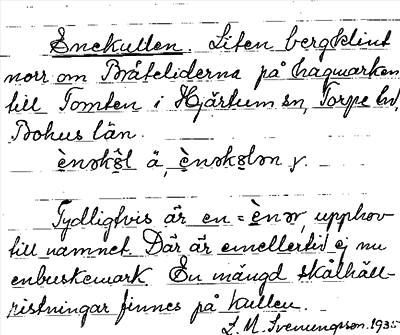 Enekullen. Liten bergklint
norr om Bråteliderna på hagmarken
till Tomten i Hjärtum sn, Torpe hd,
Bohus län.
ènəkŏl ä, ènəkŏlən γ.
Tydligtvis är en = ènər, upphov
till namnet. Där är emellertid ej nu
enbuskemark. En mängd skålhäll-
ristningar finnes på kullen.
L. M. Svenungsson. 193